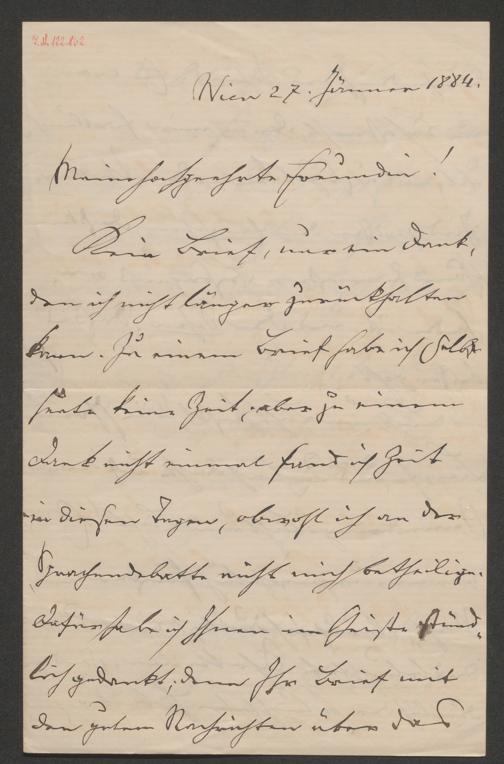 Wien 27. Jänner 1884.
Meine hochgeehrte Freundin!
Kein Brief, nur ein Dank,
den ich nicht länger zurückhalten
kann. Zu einem Brief habe ich selbst
heute keine Zeit, aber zu einem
Dank nicht einmal fand ich Zeit
in diesen Tagen, obwohl ich an der
Sprachendebatte nicht mich betheilige.
Dafür habe ich Ihnen im Geiste stünd-
lich gedankt; denn Ihr Brief mit
den guten Nachrichten über das